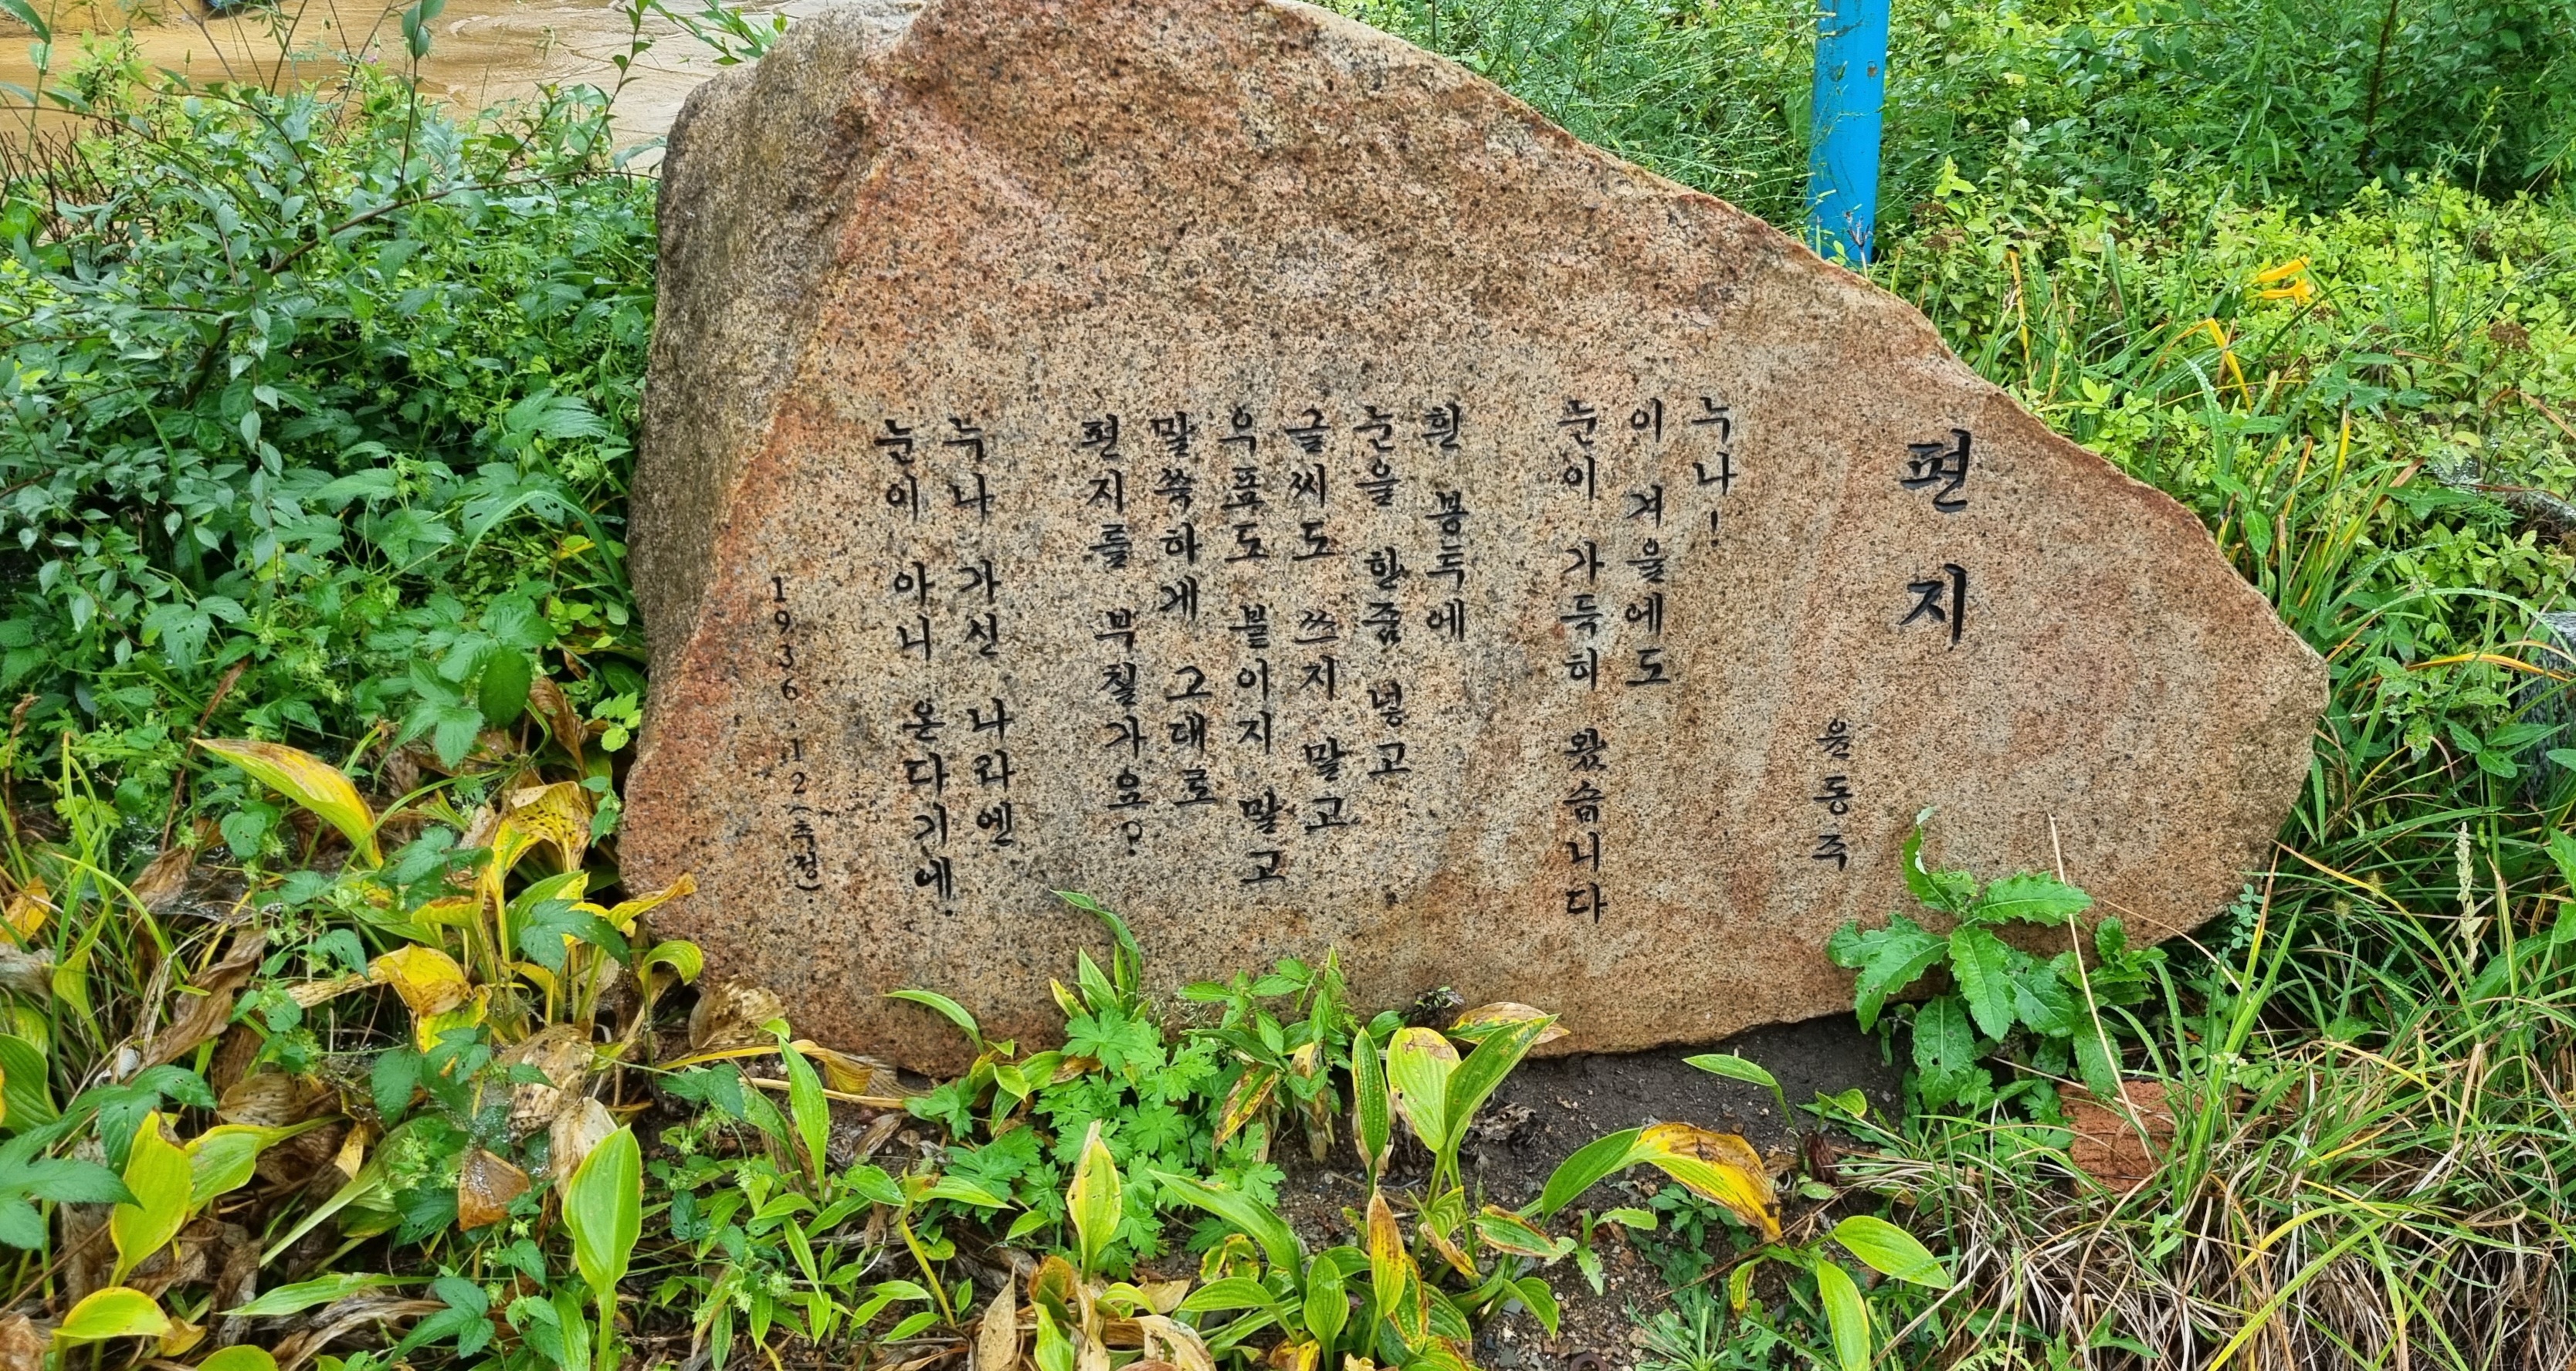 편지
윤동주
누나!
이 겨울에도
눈이 가득히 왔습니다
흰 봉투에
눈을 한줌 넣고
글씨도 쓰지 말고
우표도 붙이지 말고
말쑥하게 그대로
편지를 부칠가요?
누나 가신 나라엔
눈이 아니 온다기에.
1936.12(추정).